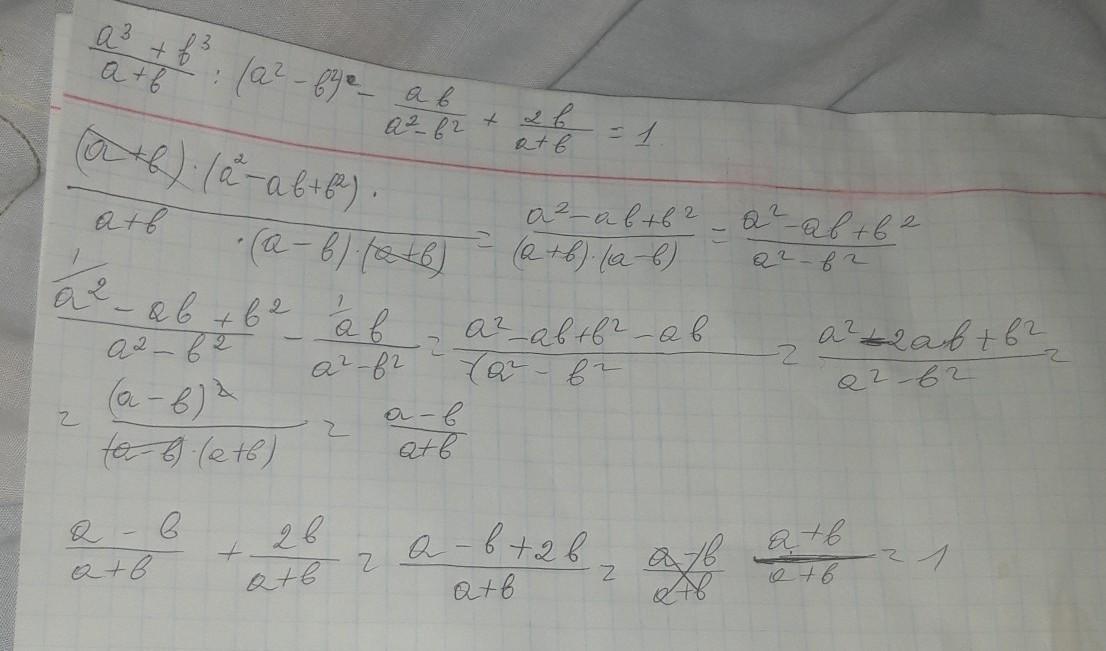 (a³ + b³)/(a + b) : (a² - b²) - ab/(a² - b²) + 2b/(a + b) = 1.
((a + b) · (a² - ab + b²) ·)/(a + b · (a - b) · (a + b)) = (a² - ab + b²)/((a + b) · (a - b)) = (a² - ab + b²)/(a² - b²)
(a² - ab + b²)/(a² - b²) - ab/(a² - b²) = (a² - ab + b² - ab)/(a² - b²) = (a² - 2ab + b²)/(a² - b²) =
= (a - b)²/((a - b) · (a + b)) = (a - b)/(a + b)
(a - b)/(a + b) + 2b/(a + b) = (a - b + 2b)/(a + b) = (a + b)/(a + b) = 1